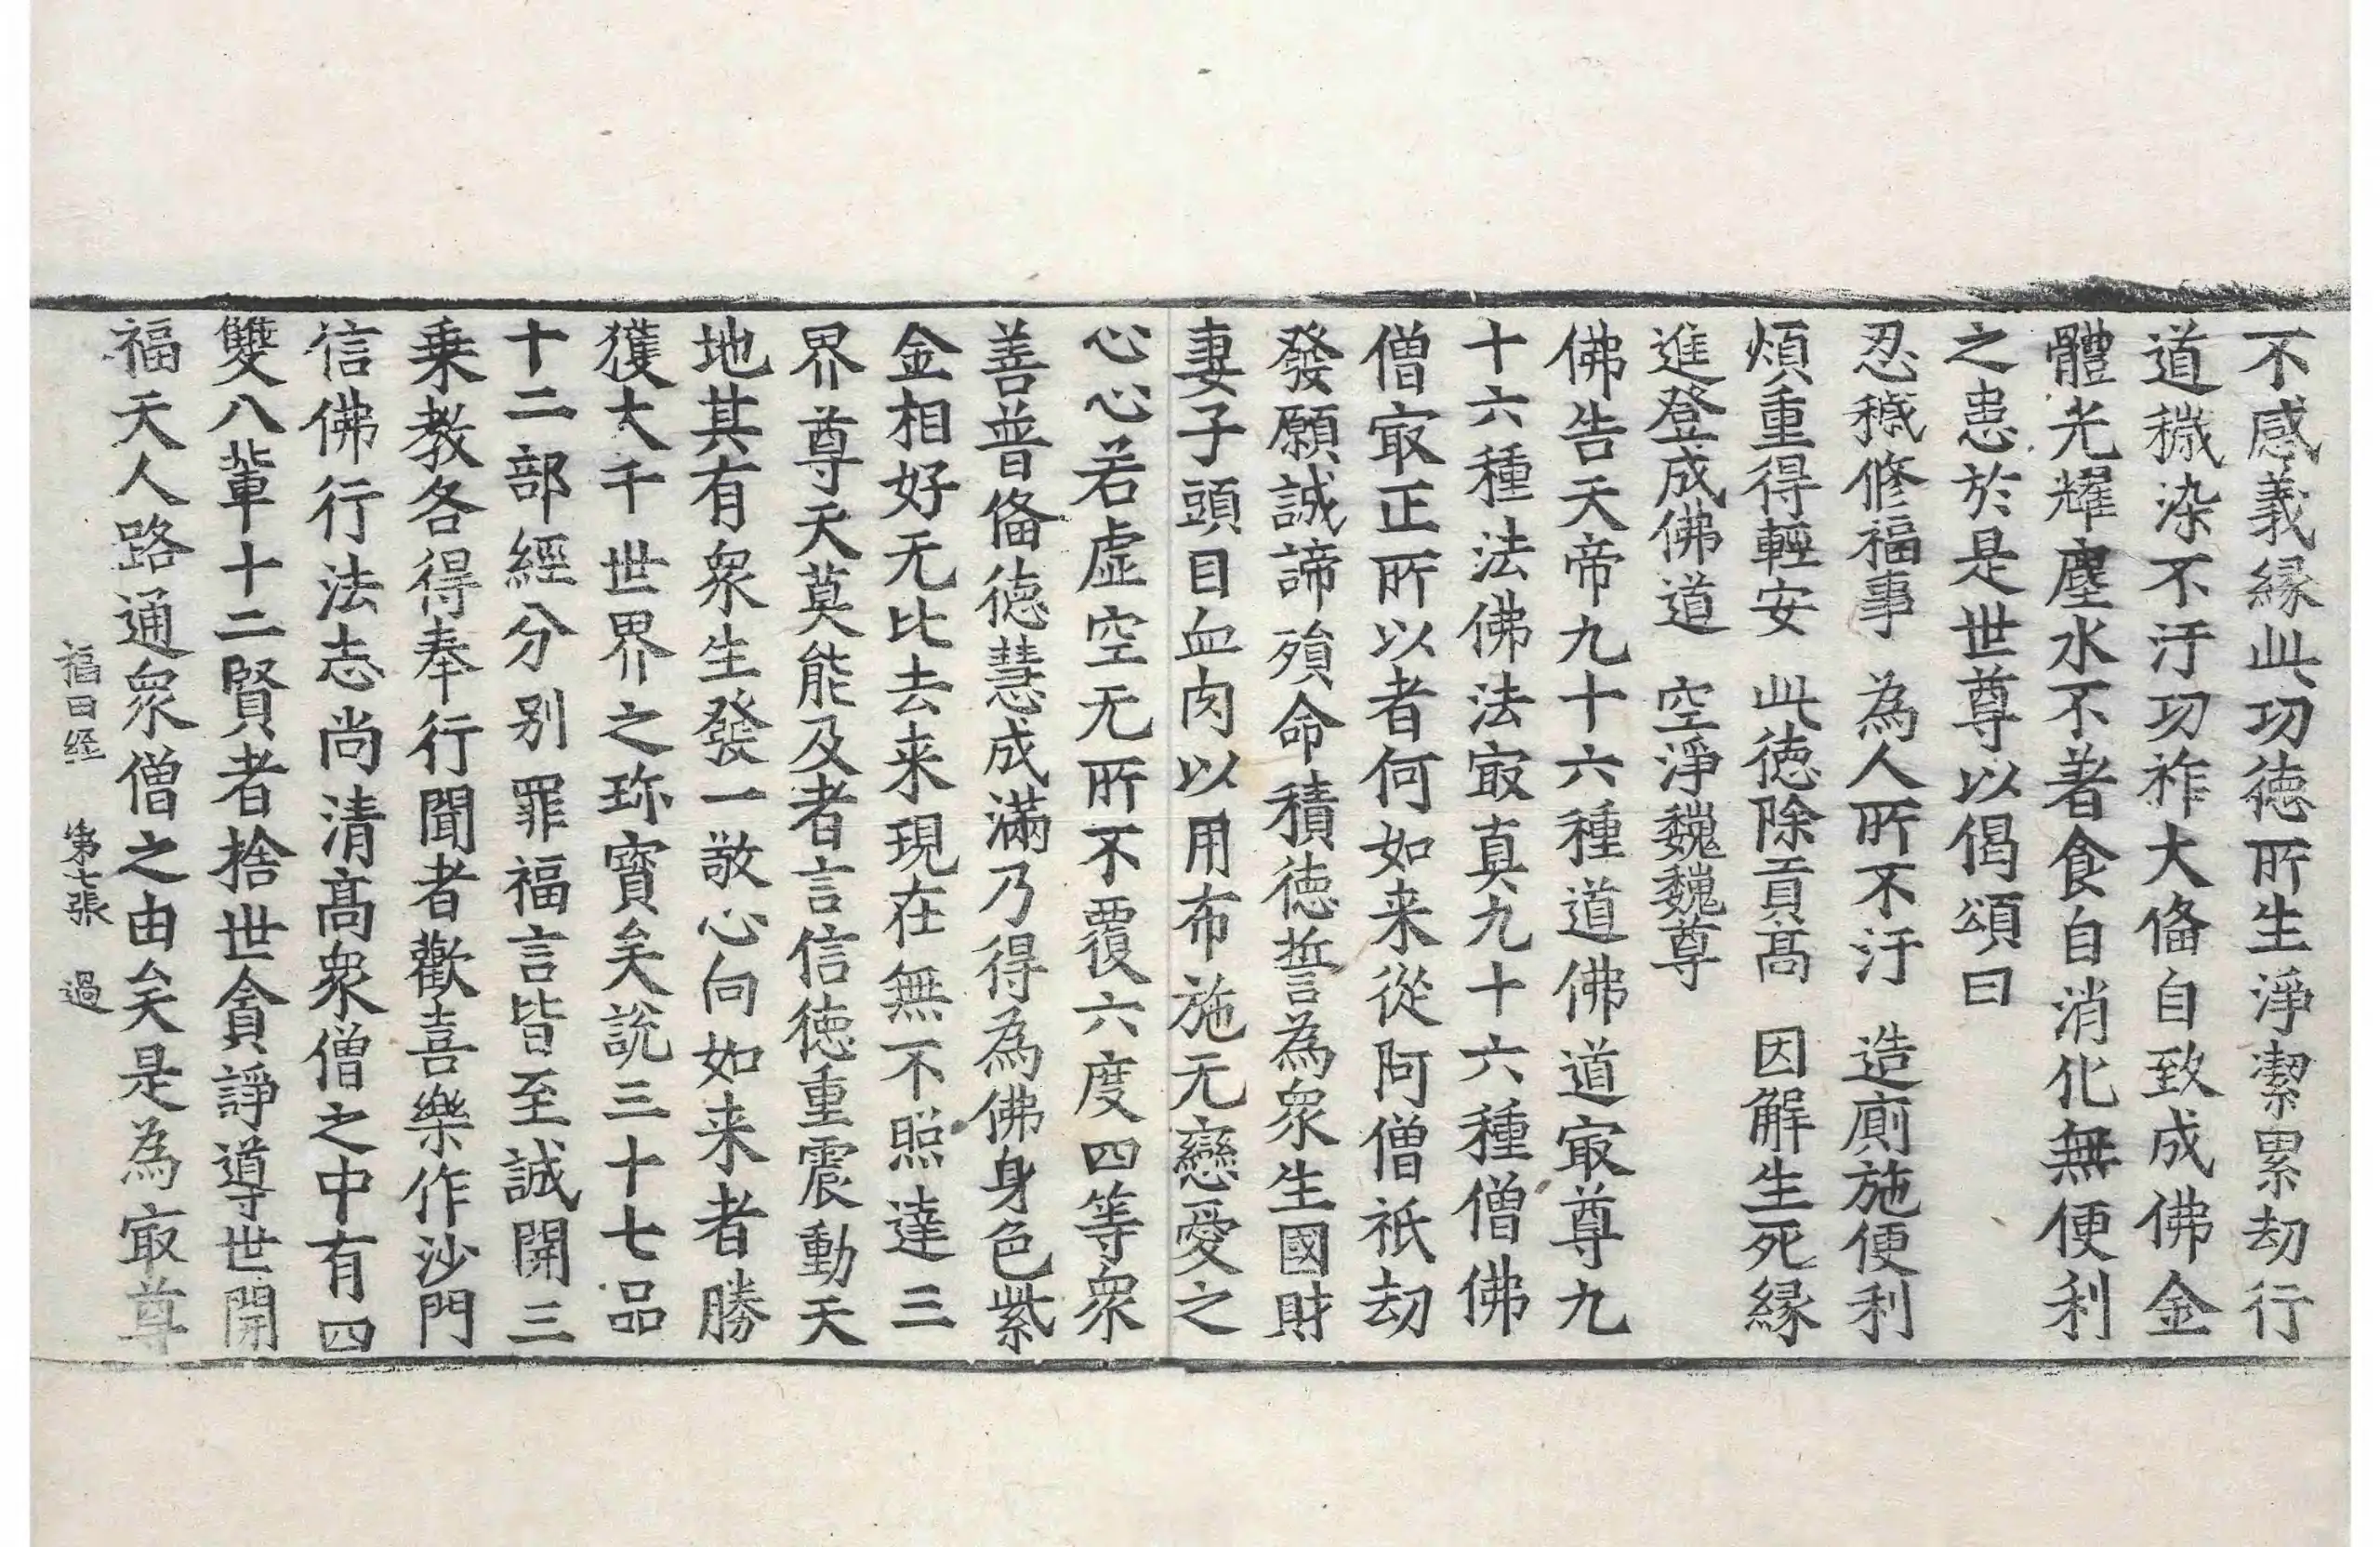 不感義緣此功德所生淨潔累劫行
道穢染不汙功祚大俻自致成佛金
體光耀塵水不著食自消化無便利
之患於是世尊以偈頌曰
忍穢修福事　為人所不汙　造廁施便利
煩重得輕安　此德除貢高　因解生死緣
進登成佛道　空淨巍巍尊
佛告天帝九十六種道佛道㝡尊九
十六種法佛法㝡真九十六種僧佛
僧㝡正所以者何如来從阿僧祇劫
發願誠諦殞命積德誓為衆生國財
妻子頭目血肉以用布施无戀愛之
心心若虛空无所不覆六度四等衆
善普俻德慧成滿乃得為佛身色紫
金相好无比去来現在無不照達三
界尊天莫能及者言信德重震動天
地其有衆生發一敬心向如来者勝
獲大千世界之珎寳矣說三十七品
十二部經分別罪福言皆至誠開三
乗教各得奉行聞者歡喜樂作沙門
信佛行法志尚清髙衆僧之中有四
雙八輩十二賢者捨世貪諍導世開
福天人路通衆僧之由矣是為㝡尊
福田经　第七張　過